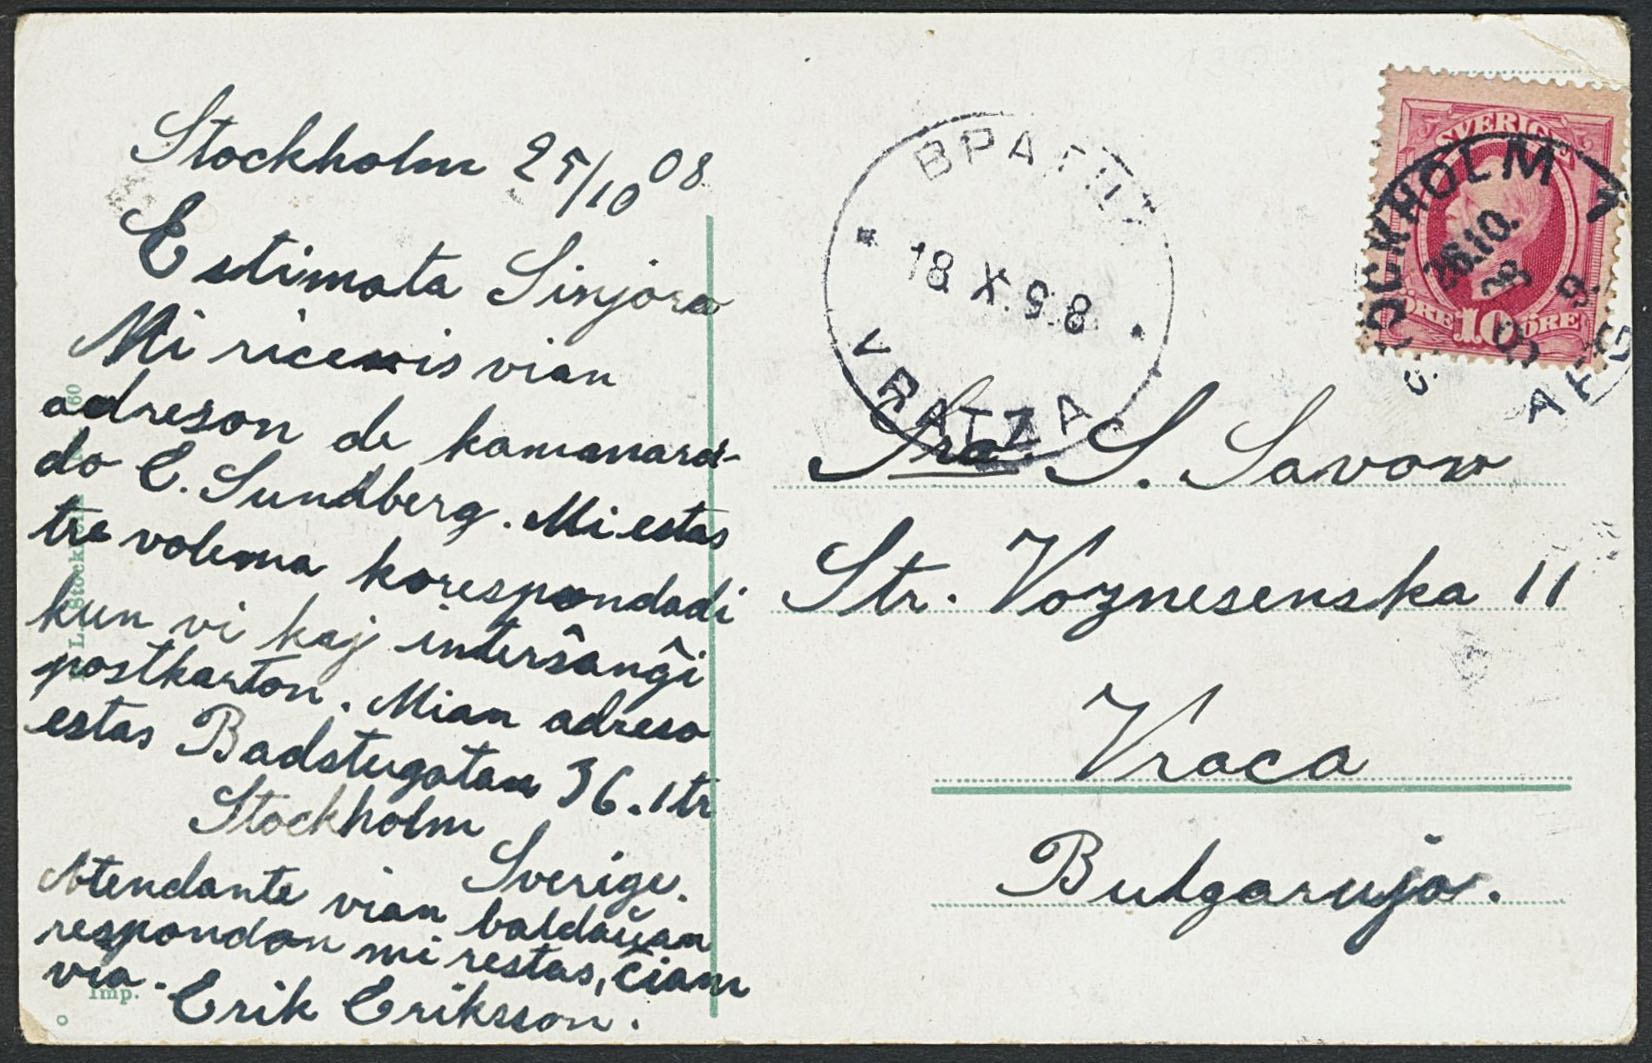 Stockholm 25/10 08
Estimata Sinjoro
Mi ricevis vian
adreson de kamanara-
do E. Sundberg. Mi estas
tre volema korespondadi
kun vi kaj interŝanĝi
postkarton. Mian adreso
estas Badstugatan 36. 1 tr
Stockholm
Sverige.
Atendante vian baldaŭan
respondon mi restas, ĉiam
via.
Erik Eriksson.
Imp.
60
SVERIGE
ÖRE 10 ÖRE
STOCKHOLM 1
26.10.
ВРАТЦА
18 X 9.8
VRATZA
Sro. S. Savow
Str. Voznesenska 11
Vraca
Bulgarujo.